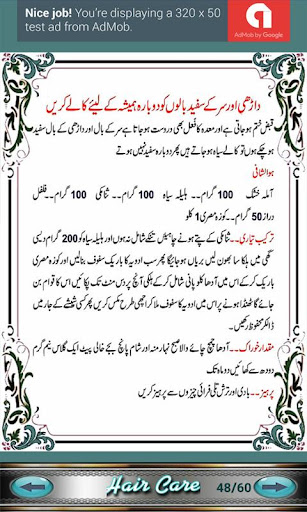 Nice job! You're displaying a 320 x 50
test ad from AdMob.
AdMob by Google
داڑھی اور سر کے سفید بالوں کو دوبارہ ہمیشہ کے لیئے کالے کریں
قبض ختم ہو جاتی ہے اور معدہ کا فعل بھی دروست ہو جاتا ہے سر کے بال اور داڑھی کے بال سفید
ہو چکے ہوں تو کالے سیاہ ہو جاتے ہیں پھر دوبارہ سفید نہیں ہوتے
ھوالشافی
آملہ خشک 100 گرام۔۔ ہلیلہ سیاہ 100 گرام۔۔ ثنا مکی 100 گرام۔۔ فلفل
دراز 50 گرام۔۔ کوزہ مصری 1 کلو
ترکیب تیاری۔۔ ثنا مکی کے پتے ہونے چاہییں تنکے شامل نہ ہوں اور ہلیلہ سیاہ کو 200 گرام دیسی
گھی میں ہلکا سا بھون لیں بریاں ہو جائیگا پھر سب ادویہ کا باریک سفوف بنالیں اور کوزہ مصری
باریک کر کے اس میں آدھا کلو پانی شامل کر کے ہلکی آنچ پر دس منٹ تک پکائیں اس کا قوام بن
جائے گا ٹھنڈا ہونے پر اس میں ادویہ کا سفوف ملا کر اچھی طرح مکس کریں پھر کسی شیشی کے جار میں
ڈالکر محفوظ رکھیں۔
مقدار خوراک۔۔ آدھا چمچ چائے والا صبح نہار منہ اور شام پانچ بجے خالی پیٹ ایک گلاس نیم گرم
دودھ سے کھائیں دو ماہ تک
پرہیز۔۔ بادی اور ترش تلی فرائی چیزوں سے پرہیز کریں
Hair Care 48/60